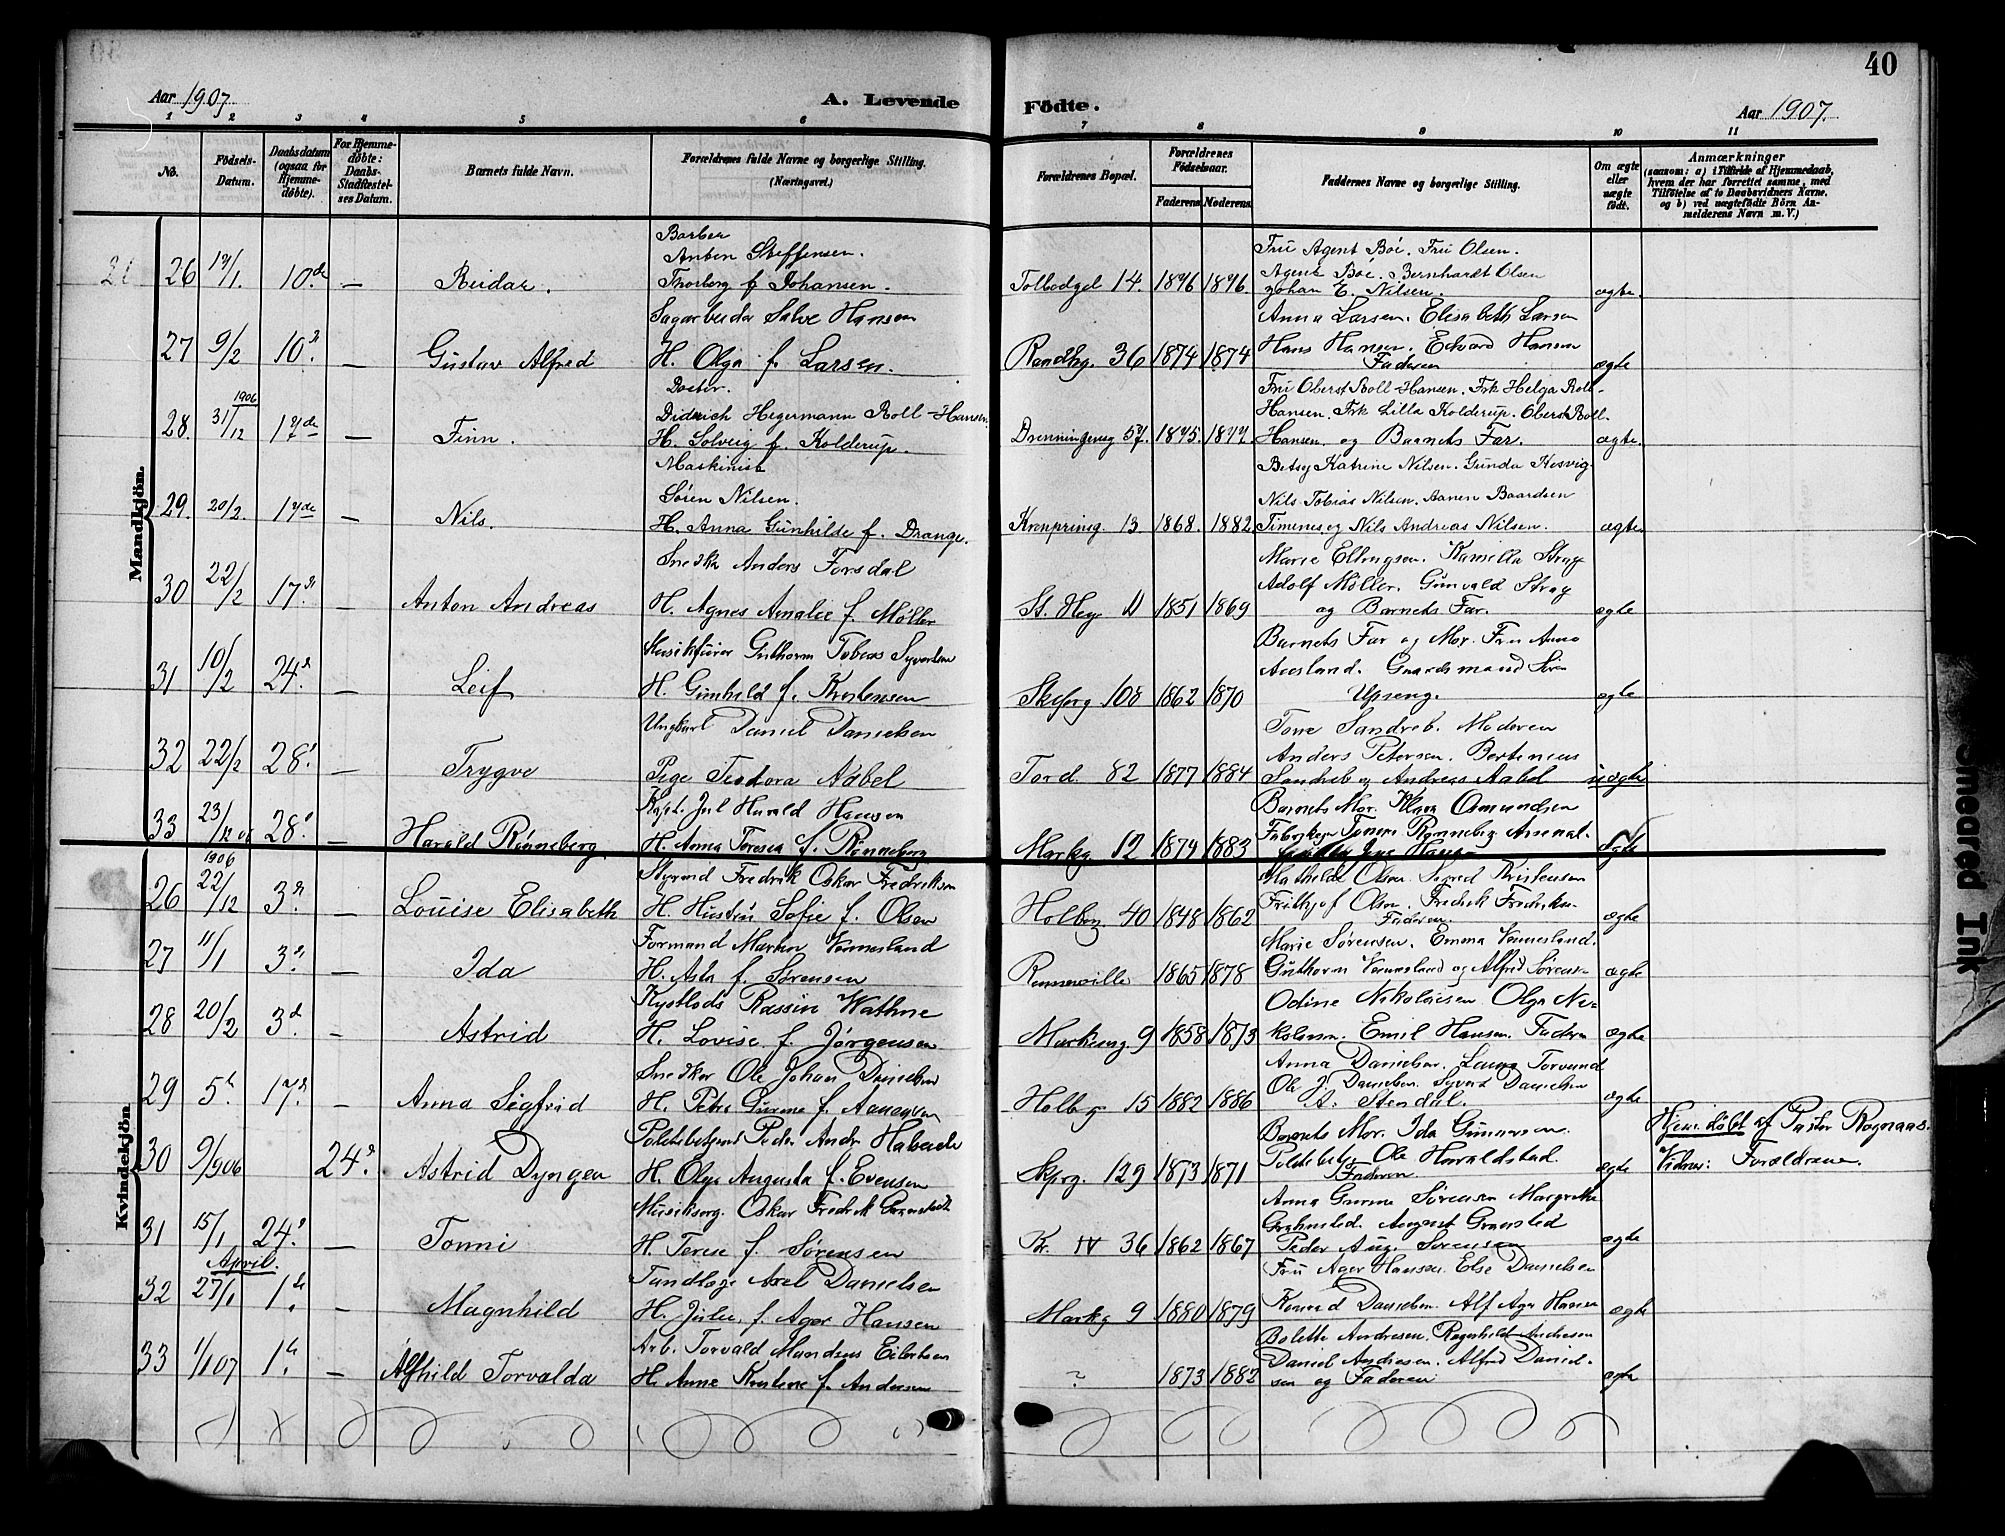 40
Aar 1907.
A. Levende Födte.
Aar 1907.
1 2 3 4 5 6 7 8 9 10 11
No.
Födsels-Datum.
Daabsdatum (ogsaa for Hjemme-døbte).
For Hjemme-døbte: Daabs-Stadfæstel-ses Datum.
Barnets fulde Navn.
Forældrenes fulde Navne og borgerlige Stilling. (Næringsvei.)
Forældrenes Bopæl.
Forældrenes Födselsaar.
Faderens Moderens
Faddernes Navne og borgerlige Stilling.
Om ægte eller uægte født.
Anmærkninger
(saasom: a) i Tilfælde af Hjemmedaab, hvem der har forrettet samme, med Tilføielse af to Daabsvidners Navne, og b) ved uægtefødte Börn An-melderens Navn m. V.)
Mandkjön.
26 10de — Reidar.
Barber
Anton Steffensen.
Thorborg f Johansen.
Tolbodgd 14. 1876 1876
Fru Agent Boe. Fru Olsen.
Agent Boe. Bernhardt Olsen
Johan E. Nilsen.
ægte.
27 9/2 10de — Gustav Alfred
Sagarbeider Salve Hansen
H. Olga f. Larsen.
Randbg. 36 1874 1874
Anna Larsen. Elisabeth Larsen
Hans Hansen. Edvard Hansen
Faderen
ægte
28. 1906 31/12 17de — Finn.
Doctor.
Didrich Hegermann Roll-Hansen.
H. Solveig f. Kolderup.
Dronningensg 57. 1875. 1877
Fru Oberst Roll-Hansen. Frk Helga Roll-
Hansen. Frk Lilla Kolderup. Oberst Roll-
Hansen og Barnets Far.
ægte.
29. 20/2. 17de — Nils.
Maskinist
Søren Nilsen.
H. Anna Gunhilde f. Drange.
Kronprinsg. 13. 1868. 1882
Betsy Katrine Nilsen. Gunda Hesvig
Nils Tobias Nilsen. Aanen Baardsen
Timenes og Nils Andreas Nilsen.
ægte.
30 22/2 17de — Anton Andreas
Snedker Anders Forsdal
H. Agnes Amalie f. Møller
1851 1869
Marie Ellingsen. Kamilla Stray
Adolf Møller. Gunvald Stray
og Barnets Far.
ægte
31 10/2 24de — Leif
Guthorm Tobias Syvertsen
H. Gunhild f. Kristensen
108 1862 1870
Barnets Far og Mor. Fru Anna
Aasland. Gaardsmand Søren
Upseng.
ægte
32 22/2 28de — Trygve
Ungkarl Daniel Danielsen
Pige Teodora Aabel
Tord. 82 1877 1884
Tone Sandreb. Moderen
Anders Petersen. Bertinius
Sandreb og Andreas Aabel
uægte
33 23/12 06 28de — Harald Rönneberg.
Kapt. Jul Harald Hansen
H. Anna Teresia f. Rönneberg
Markg 12 1874 1883
Barnets Mor. Klara Osmundsen
ægte
Kvindekjön.
26 1906 22/12 3de — Louise Elisabeth
Styrmd Fredrik Oskar Fredriksen
H. Sofie f. Olsen
Holbg 40 1848 1862
Mathilde Olsen. Sigrid Kristensen
Frithjof Olsen. Fredrik Fredriksen
Faderen.
ægte
27 11/1 3de — Ida
Formand Martin Vennesland
H. Asta f. Sørensen
1865 1878
Marie Sørensen. Emma Vennesland.
Guthorm Vennesland og Alfred Sørensen
ægte
28 20/2 3de — Astrid
Kystlods Rassin Wathne
H. Lovise f. Jörgensen
9 1858 1873
Odine Nikolaisen Olga Ni-
kolaisen. Emil Hansen. Faderen
ægte
29 17de — Anna Sigfrid
Snedker Ole Johan Danielsen
H. Petra Gurine f.
Holbg. 15 1882 1886
Anna Danielsen. Laura Torvund
Ole J. Danielsen Syvert Danielsen
A. Stendal.
ægte
30 9/9 06 24de Astrid Dyngen
Politibetjent Peder Andr.
H. Olga Augusta f. Evensen
129 1873 1871
Barnets Mor. Ida Gunnersen.
Ole Haraldstad.
Faderen
ægte
Hjem.døbt af Pastor Rognaas.
Vidner: Forældrene.
31 15/1 24de — Tonni
Musikserg. Oskar Fredrik Gramstedt
H. Terese f. Sørensen
Kr. IV 36 1862 1867
Anna Gurine Sørensen Margrethe
August
Peder Aug. Sørensen
ægte
April.
32 27/1 1ste — Magnhild
Tandlæge Axel Danielsen
H. Julie f. Ager Hansen
Markg 9 1880 1879
Fru Ager Hansen. Else Danielsen
Konrad Danielsen. Alf Ager Hansen
ægte
33 1/1 07 1ste — Alfhild Torvalda
Arb. Torvald Mandius Eilertsen
H. Anne Kristine f. Andersen
? 1873 1882
Bolette Andresen. Ragnhild Andresen
Daniel Andresen. Alfred Daniel-
sen og Faderen
ægte
Smeared Ink